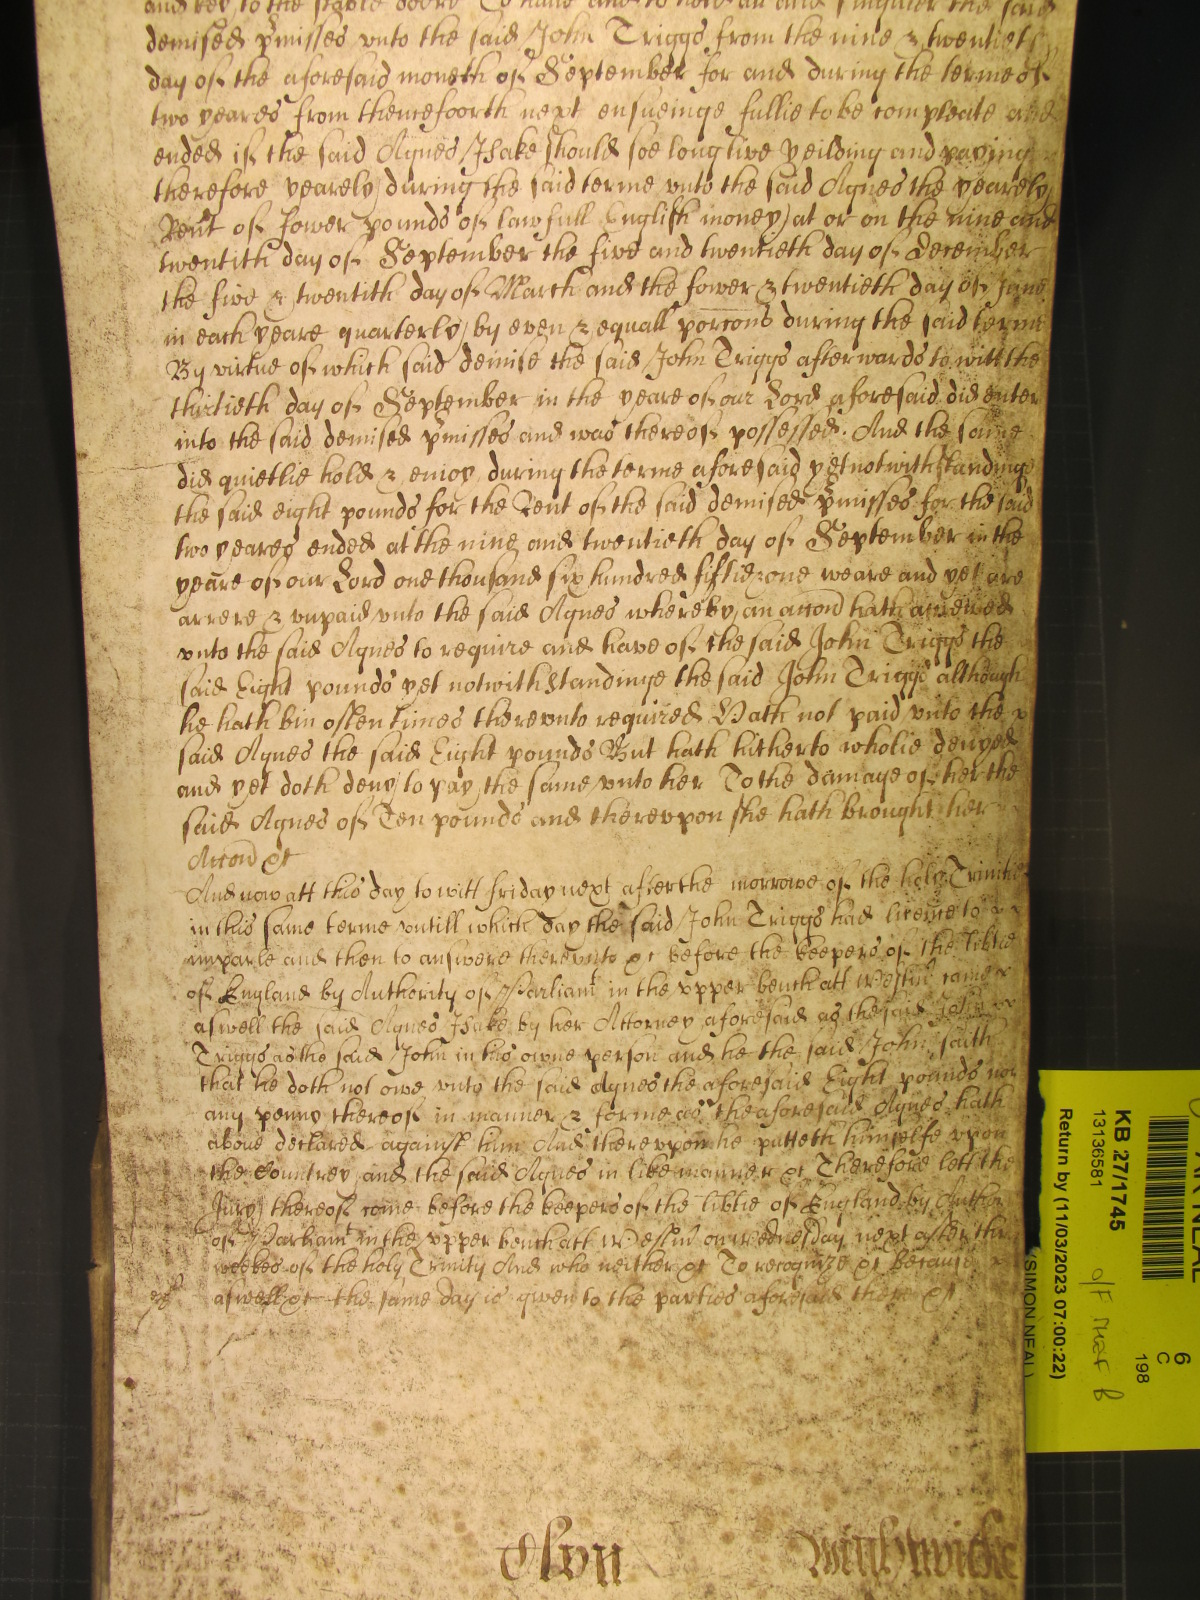 and key to the stable doore To have and to hold all and singuler the said
demised p̄misses vnto the said John Triggs from the nine & twentieth
day of the aforesaid moneth of September for and during the terme of
two yeares from thencefoorth next ensueinge fullie to be compleate and
ended if the said Agnes Isake should soe long live yeilding and paying
therefore yearely during the said terme vnto the said Agnes the yearely
Rent of fower pounds of lawfull English money at or on the nine and
twentith day of September the five and twentieth day of December
the five & twentith day of March and the fower & twentieth day of June
in each yeare quarterly by even & equall porcons during the said terme
By virtue of which said demise the said John Triggs afterwards to witt the
thirtieth day of September in the yeare of our Lord aforesaid did enter
into the said demised p̄misses and was thereof possessed. And the same
did quietlie hold & enioy during the terme aforesaid yet notwithstanding
the said eight pounds for the Rent of the said demised p̄misses for the said
two yeares ended at the nine and twentieth day of September in the
yeare of our Lord one thousand six hundred fiftie one weare and yet are
arrere & vnpaid vnto the said Agnes whereby an accon hath accrewed
vnto the said Agnes to require and have of the said John Triggs the
said Eight pounds yet notwithstandinge the said John Triggs although
he hath bin often times therevnto required Hath not paid vnto the
said Agnes the said Eight pounds But hath hitherto wholie denyed
and yet doth deny to pay the same vnto her To the damage of her the
said Agnes of Ten pounds and therevpon she hath brought her
Accon &c
And now att this day to witt friday next after the morrowe of the holy Trinitie
in this same terme vntill which day the said John Triggs had licence to
imparle and then to answere therevnto &c before the keepers of the libtie
of England by Authority of Parliamt in the vpper bench att Westm̄ came
aswell the said Agnes Isake by her Attorney aforesaid as the said John
Triggs as the said John in his owne person and he the said John saith
that he doth not owe vnto the said Agnes the aforesaid Eight pounds nor
any penny thereof in manner & forme as the aforesaid Agnes hath
aboue declared against him And therevpon he putteth himselfe vpon
the Countrey and the said Agnes in like manner &c Therefore lett the
Jury thereof come before the keepers of the libtie of England by Author
of Parliamt in the vpper bench att Westm̄ on wednesday next after three
weekes of the holy Trinity And who neither &c To recognize &c because
aswell &c the same day is given to the parties aforesaid there &c
KB 27/1745
13136581
Return by (11/03/2023 07:00:22)
(SIMON NEAL)
6
C
198